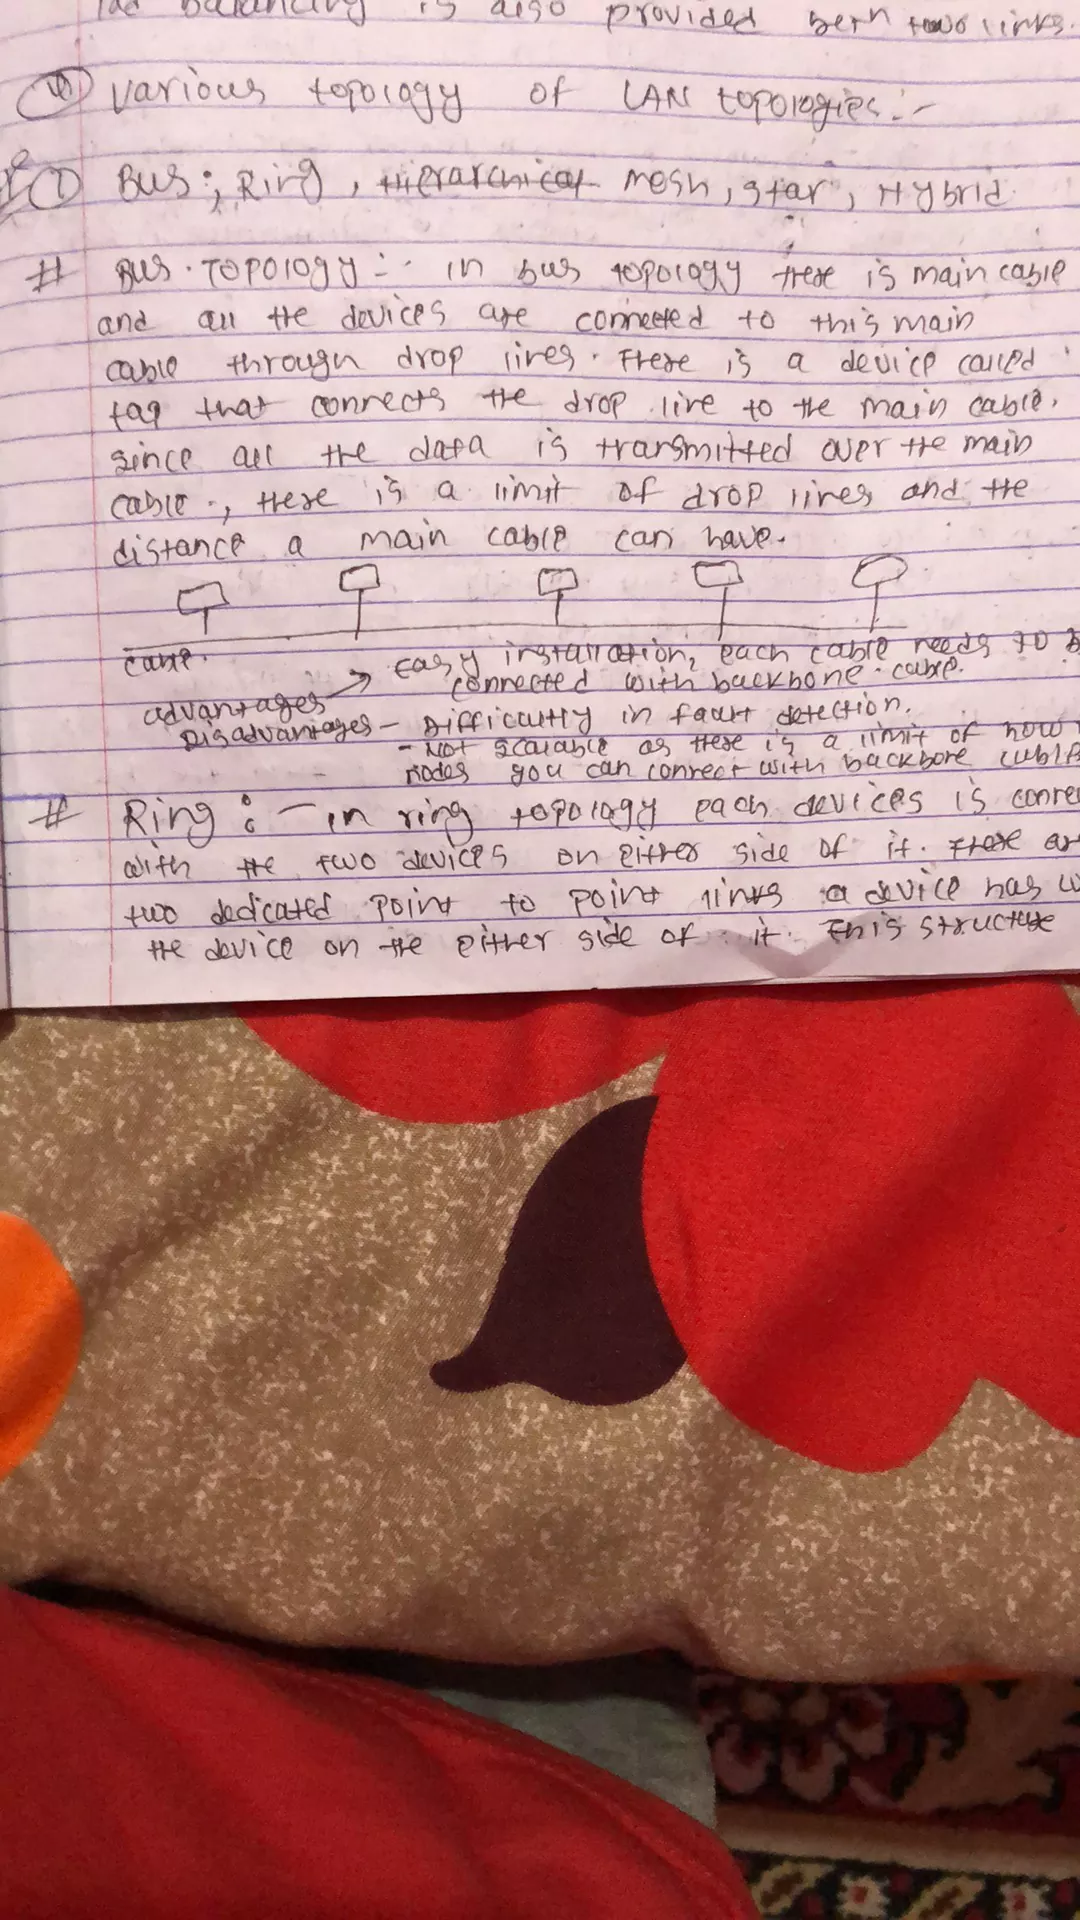 balancing is also provided betn two links.
Various topology of LAN topologies:-
① Bus:, Ring, Hierarchical mesh, star, Hybrid.
# Bus. Topology:- in bus topology there is main cable
and all the devices are connected to this main
cable through drop lines. There is a device called
tap that connects the drop line to the main cable.
since all the data is transmitted over the main
cable, there is a limit of drop lines and the
distance a main cable can have.
cable.
easy installation, each cable needs to b
connected with backbone cable.
advantages →
Disadvantages - Difficulty in fault detection.
- Not scalable as there is a limit of how
nodes you can connect with backbone cable
# Ring:- in ring topology each devices is conne
with the two devices on either side of it. There ar
two dedicated point to point links a device has w
the device on the either side of it. This structure